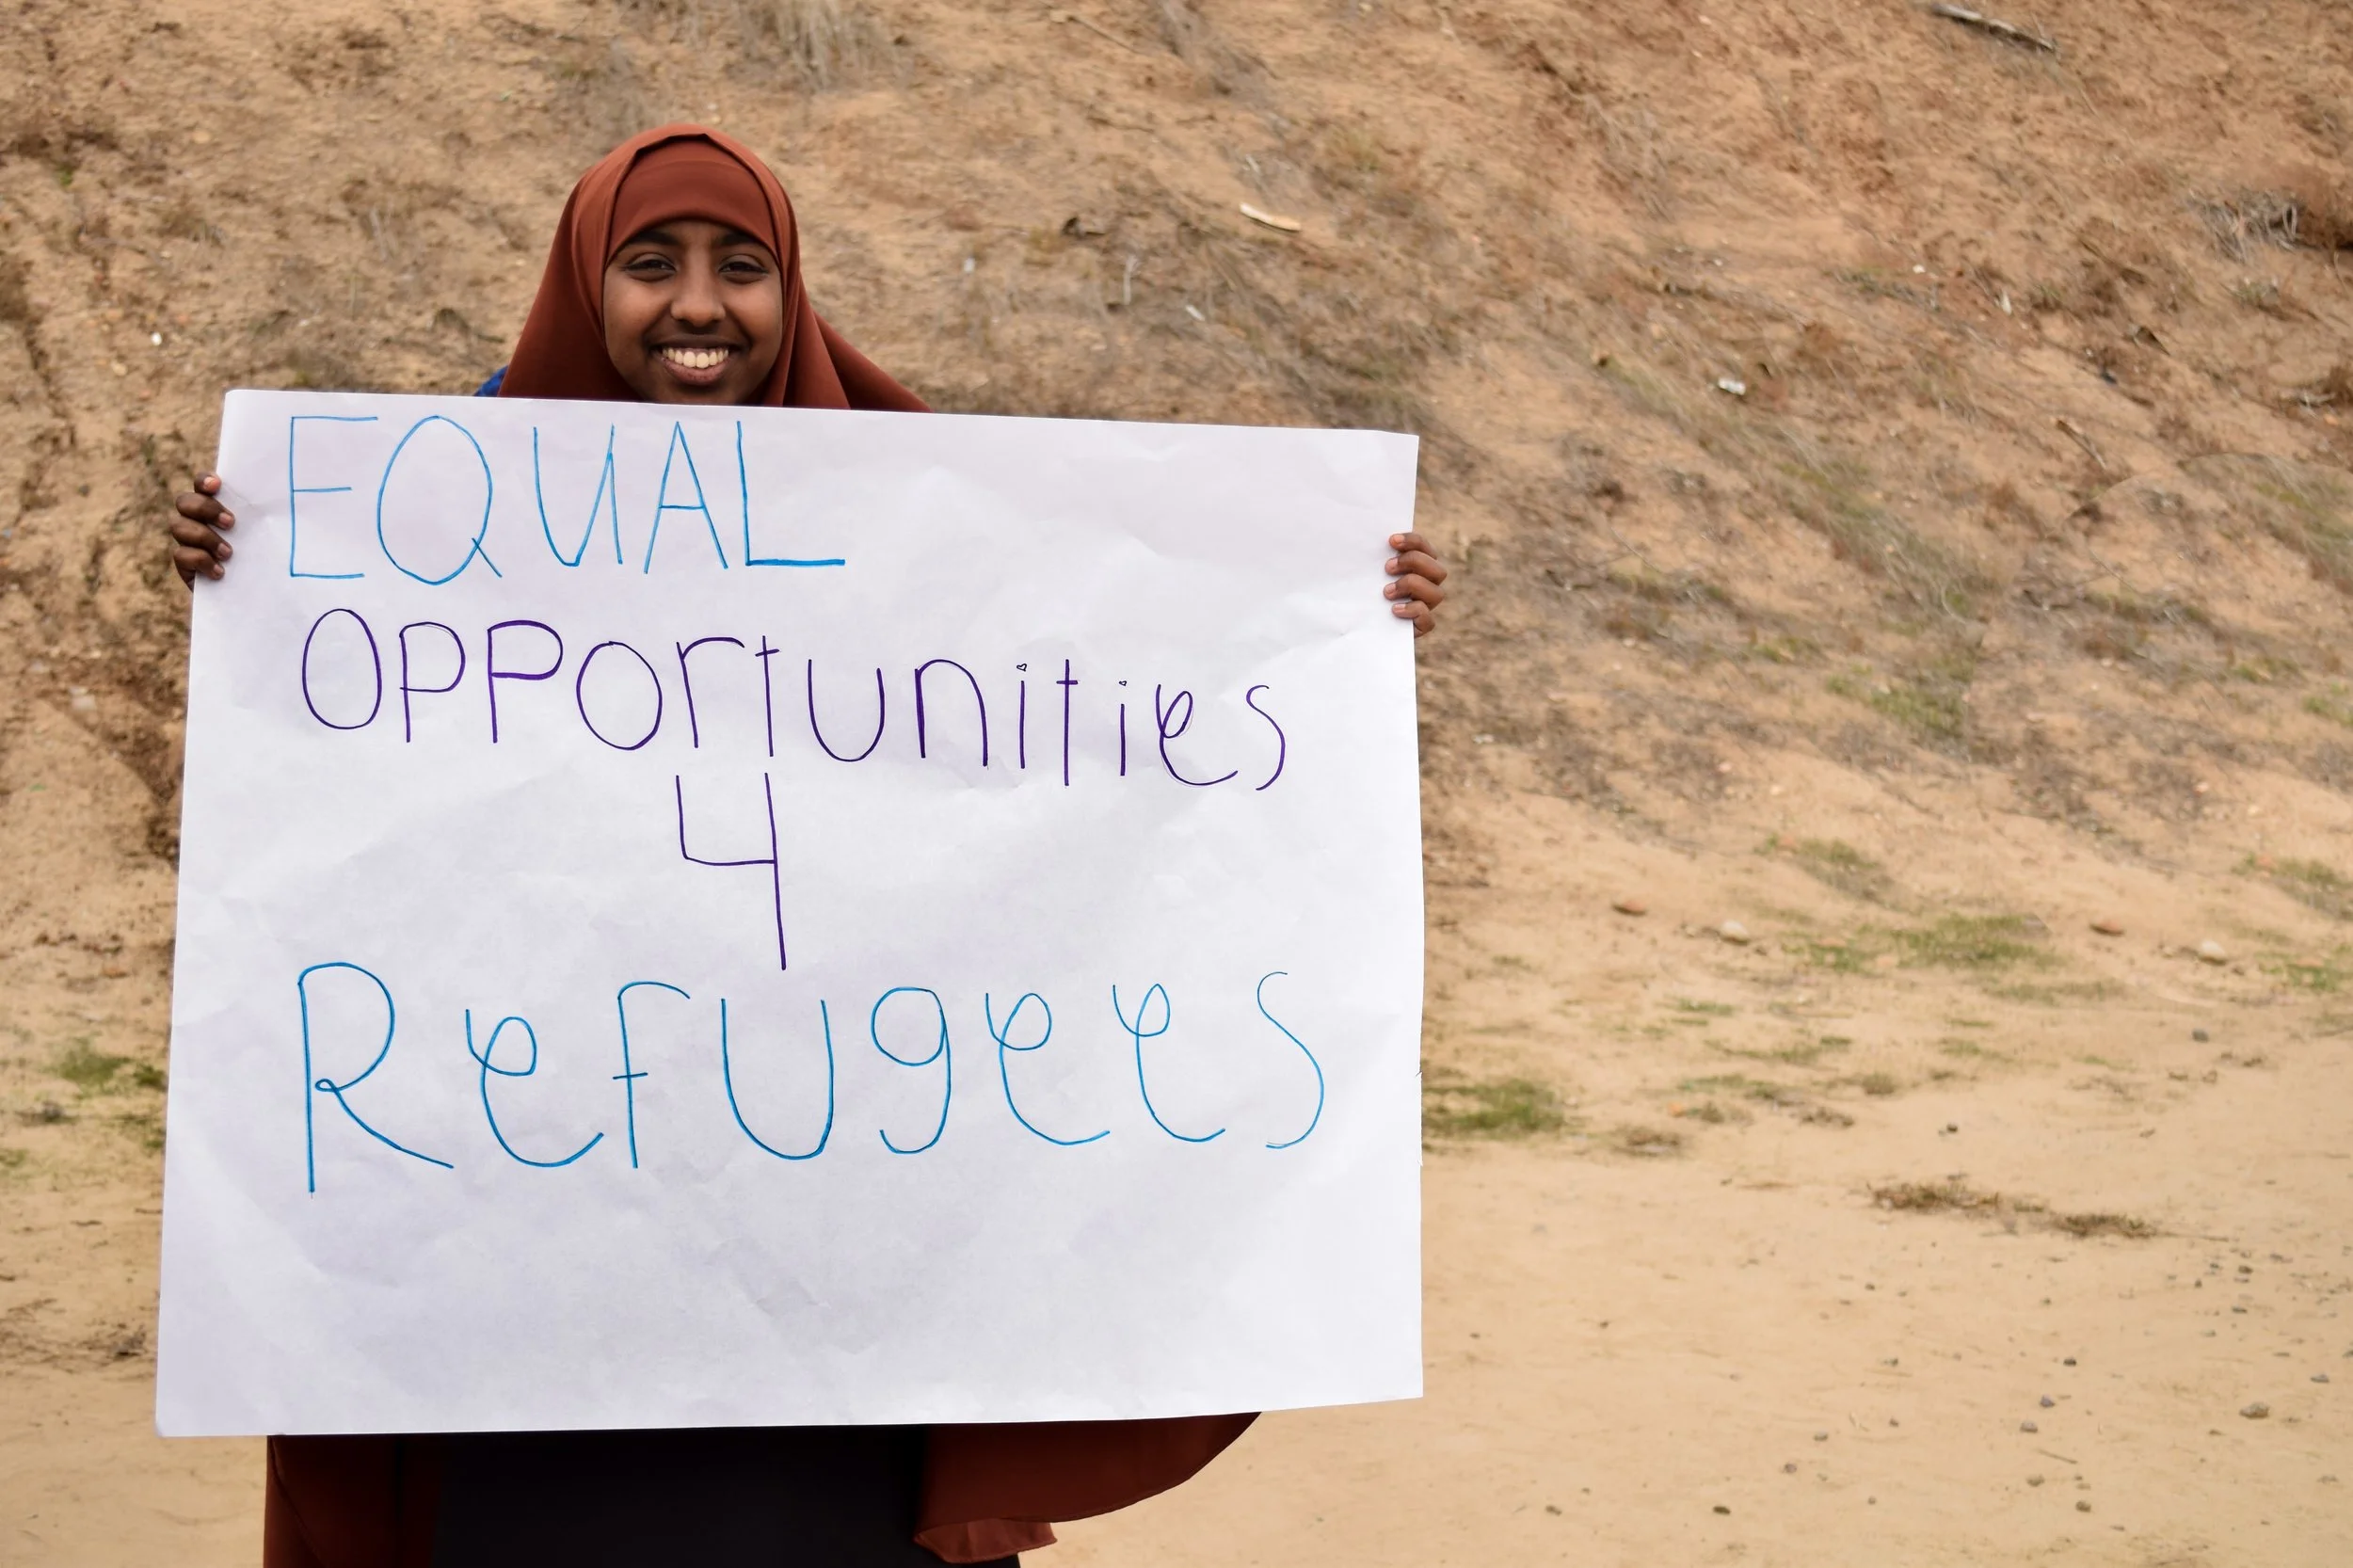 EQUAL
OPPortunities
4
Refugees